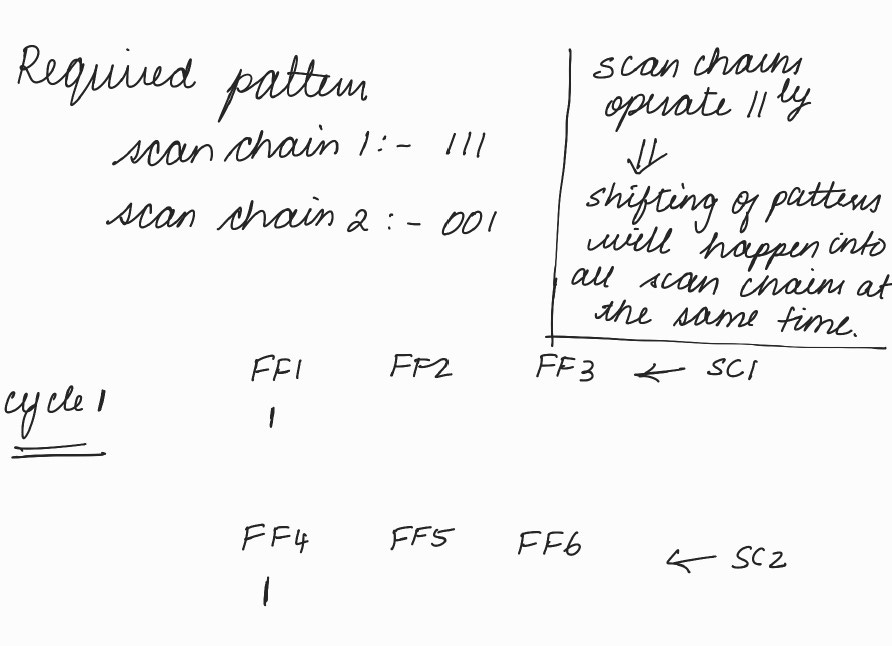 Required pattern
scan chain 1:- 111
scan chain 2:- 001
scan chains
operate || ly
⇓
shifting of patterns
will happen into
all scan chains at
the same time.
cycle 1
FF1 FF2 FF3 ← SC1
1
FF4 FF5 FF6 ← SC2
1